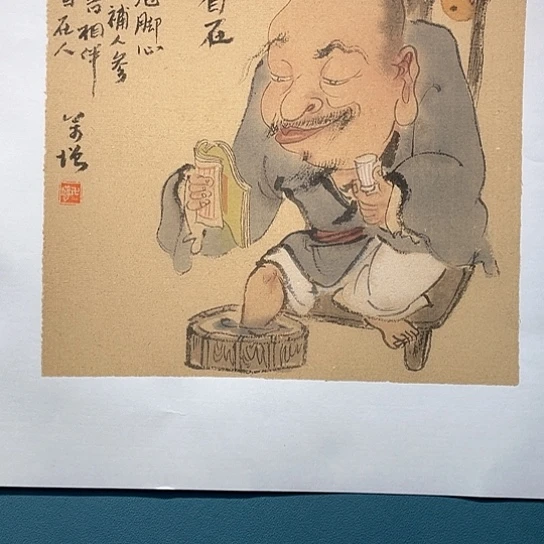 自在
泡脚心
補人参
相伴
自在人
增